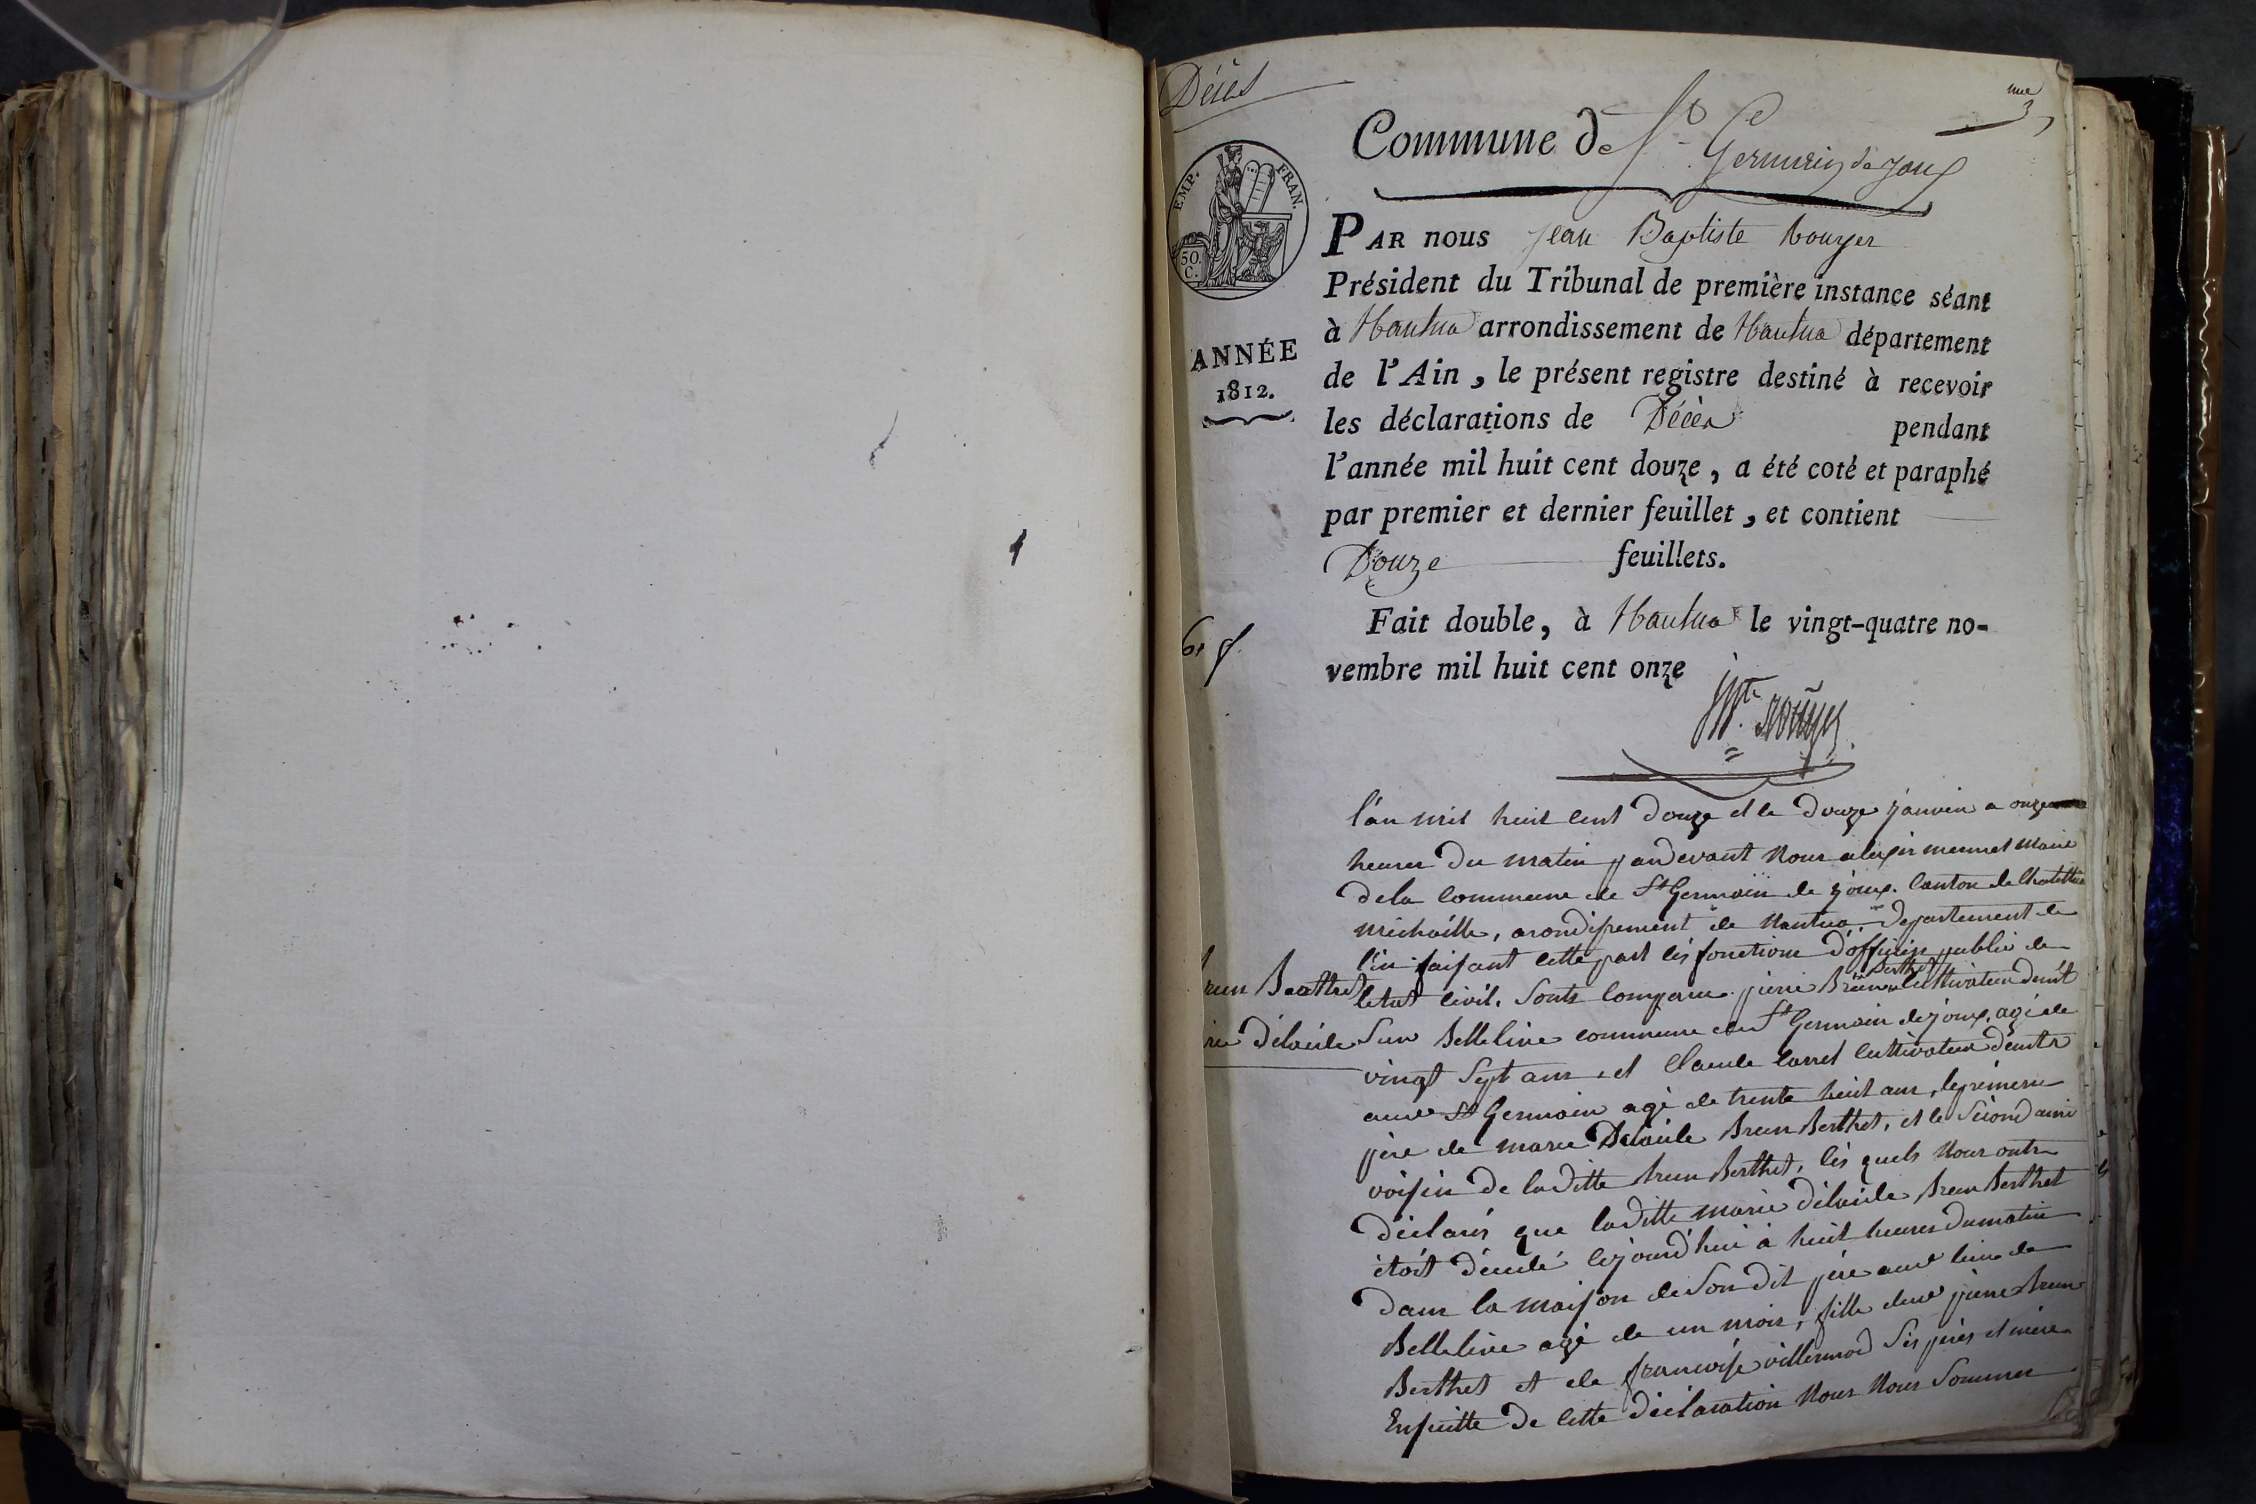 Décès
Commune de St Germain de Joux
EMP. FRAN.
50.
C.
ANNÉE
1812.
PAR nous Jean Baptiste Rouyer
Président du Tribunal de première instance séant
à Nantua arrondissement de Nantua département
de l'Ain, le présent registre destiné à recevoir
les déclarations de Décès pendant
l'année mil huit cent douze, a été coté et paraphé
par premier et dernier feuillet, et contient
Douze feuillets.
Fait double, à Nantua le vingt-quatre no-
vembre mil huit cent onze
l'an mil huit cent douze et le douze janvier a onze
heures du matin pardevant nous alexis mermet maire
de la commune de St Germain de joux. canton de Chatillon
michaille, arondissement de Nantua departement de
l'in faisant cette part les fonctions d'officier public de
letat civil. Sonts comparu pierre Brun Berthet cultivateur demt
Sur Belleline commune de St Germain de joux, agé de
vingt sept ans, et Claude Carrel cultivateur demts
aud St Germain agé de trente huit ans, le premier
père de marie Délaide Brun Berthet, et le second ami
voisin de laditte Brun Berthet, les quels nous onts
déclarés que laditte marie délaide Brun Berthet
étoit décédé cejourd'hui à huit heures du matin
dans la maison de Son dit père aud lieu de
Belleline agé de un mois, fille dud pierre Brun
Berthet et de françoise villermod Ses pères et mère
Ensuitte de cette déclaration Nous Nous Sommes